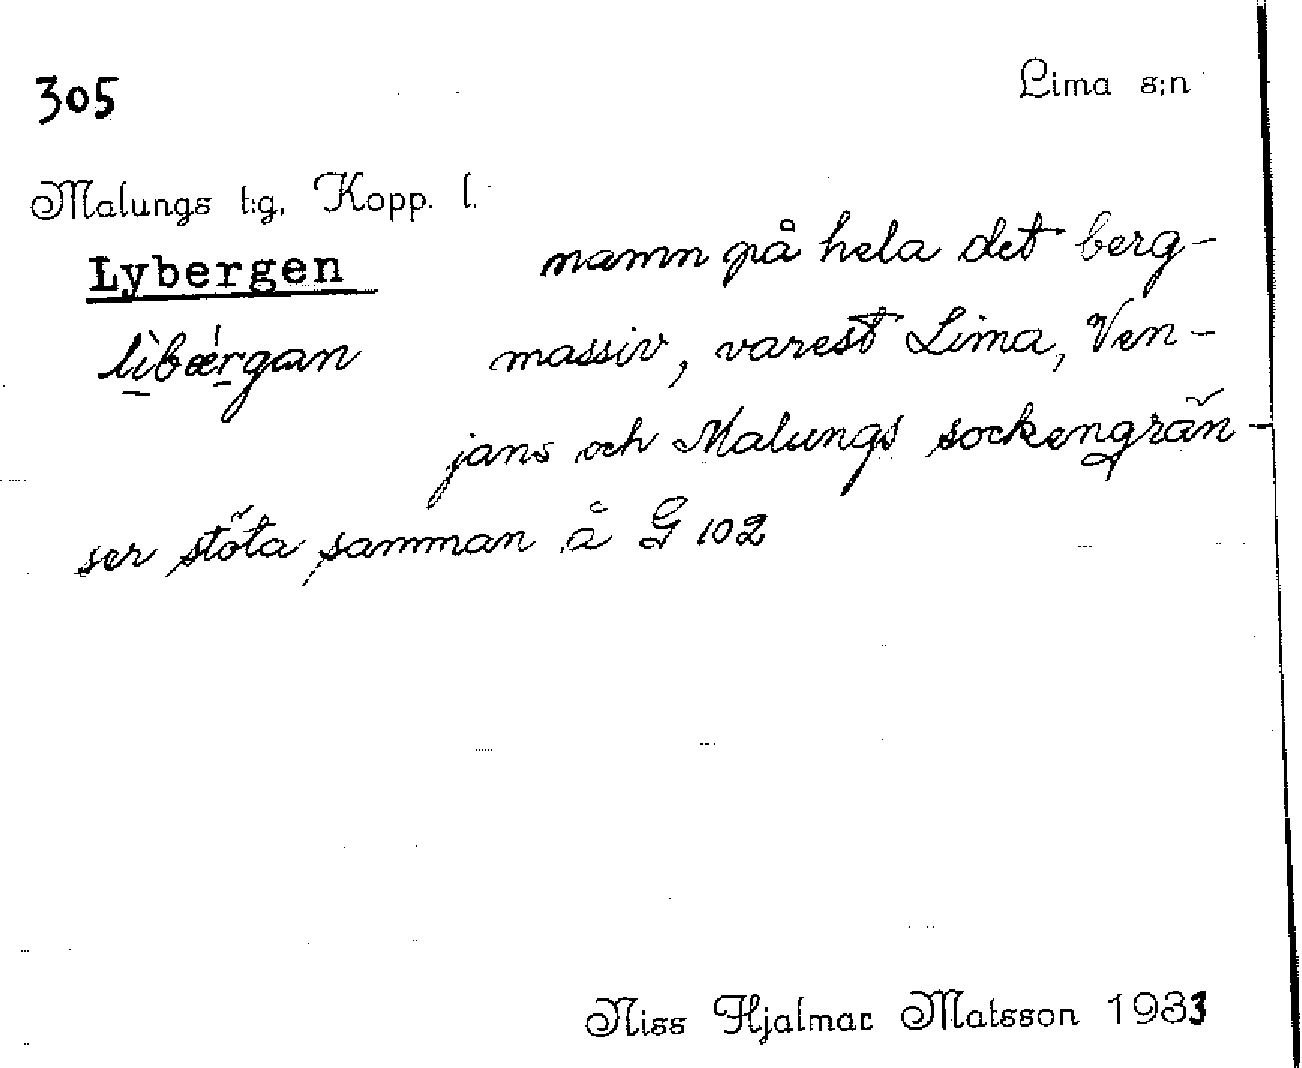 305
Lima s:n
Malungs t:g, Kopp. l.
Lybergen namn på hela det berg-
lìbǽrgan massiv, varest Lima, Ven-
jans och Malungs sockengrän-
ser stöta samman å G 102
Niss Hjalmar Matsson 1933